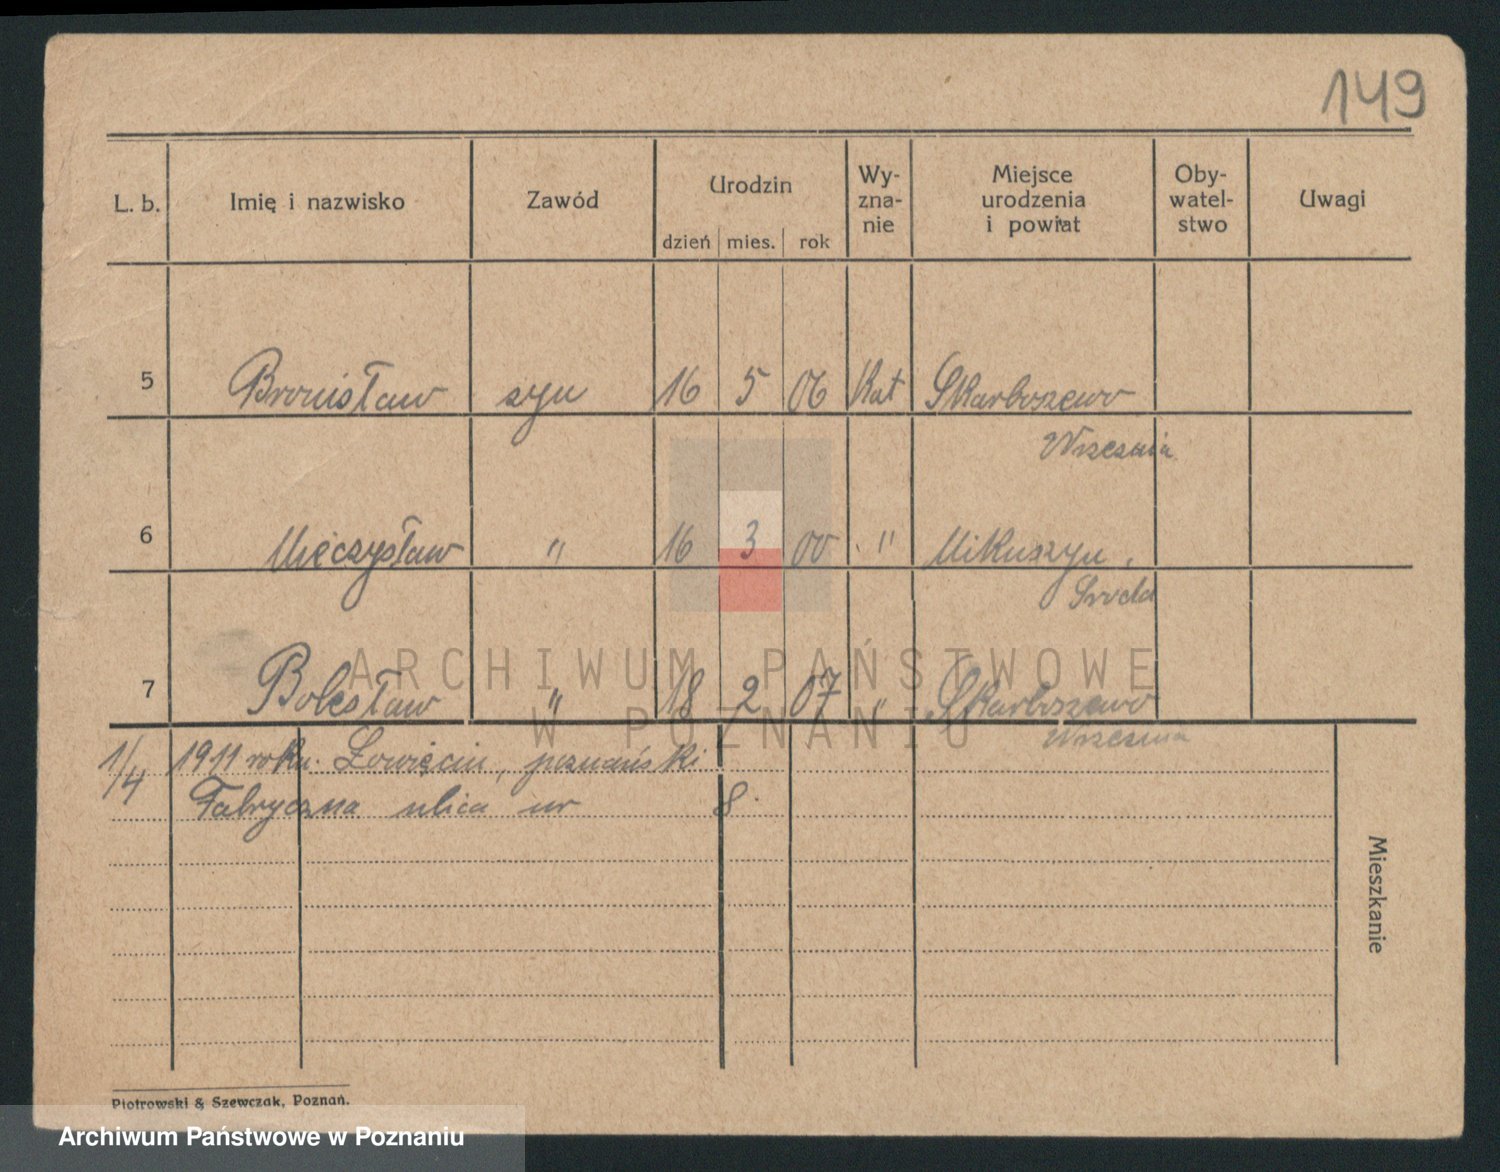 149
L. b. Imię i nazwisko Zawód Urodzin dzień mies. rok Wy-zna-nie Miejsce urodzenia i powiat Oby-watel-stwo Uwagi
5 Bronisław syn 16 5 06 Kat Skarboszewo
Wrzesnia
6 Mieczysław " 16 3 00 " Mikuszyn,
Sroda
7 Bolesław " 18 2 07 " Skarboszewo
Wrzesnia
ARCHIWUM PAŃSTWOWE
W POZNANIU
1/4 1911 roku. Łowięcin, poznański
Fabryczna ulica nr 8.
Mieszkanie
Piotrowski & Szewczak, Poznań.
Archiwum Państwowe w Poznaniu